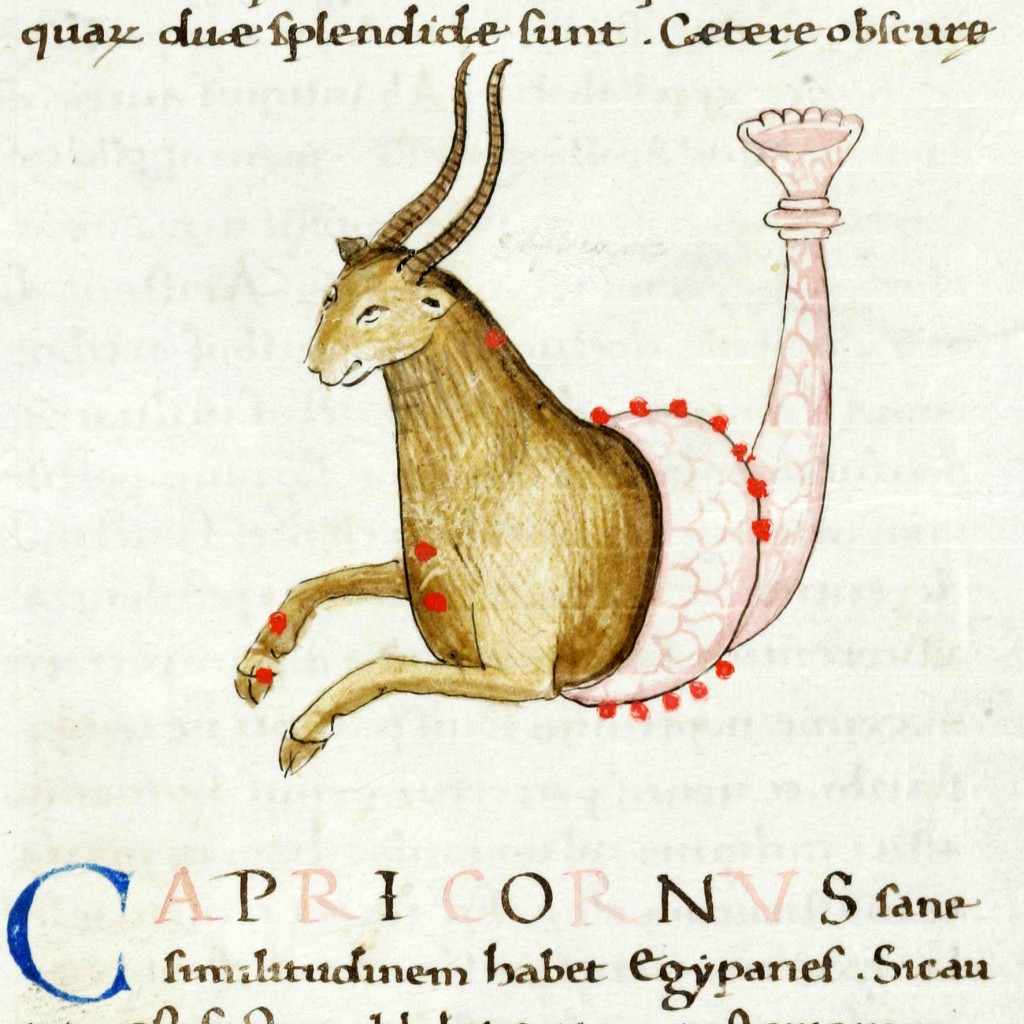 quaꝝ duæ splendidæ sunt . Cætere obscure
CAPRICORNVS sane
similitudinem habet Egypanes . Sicau